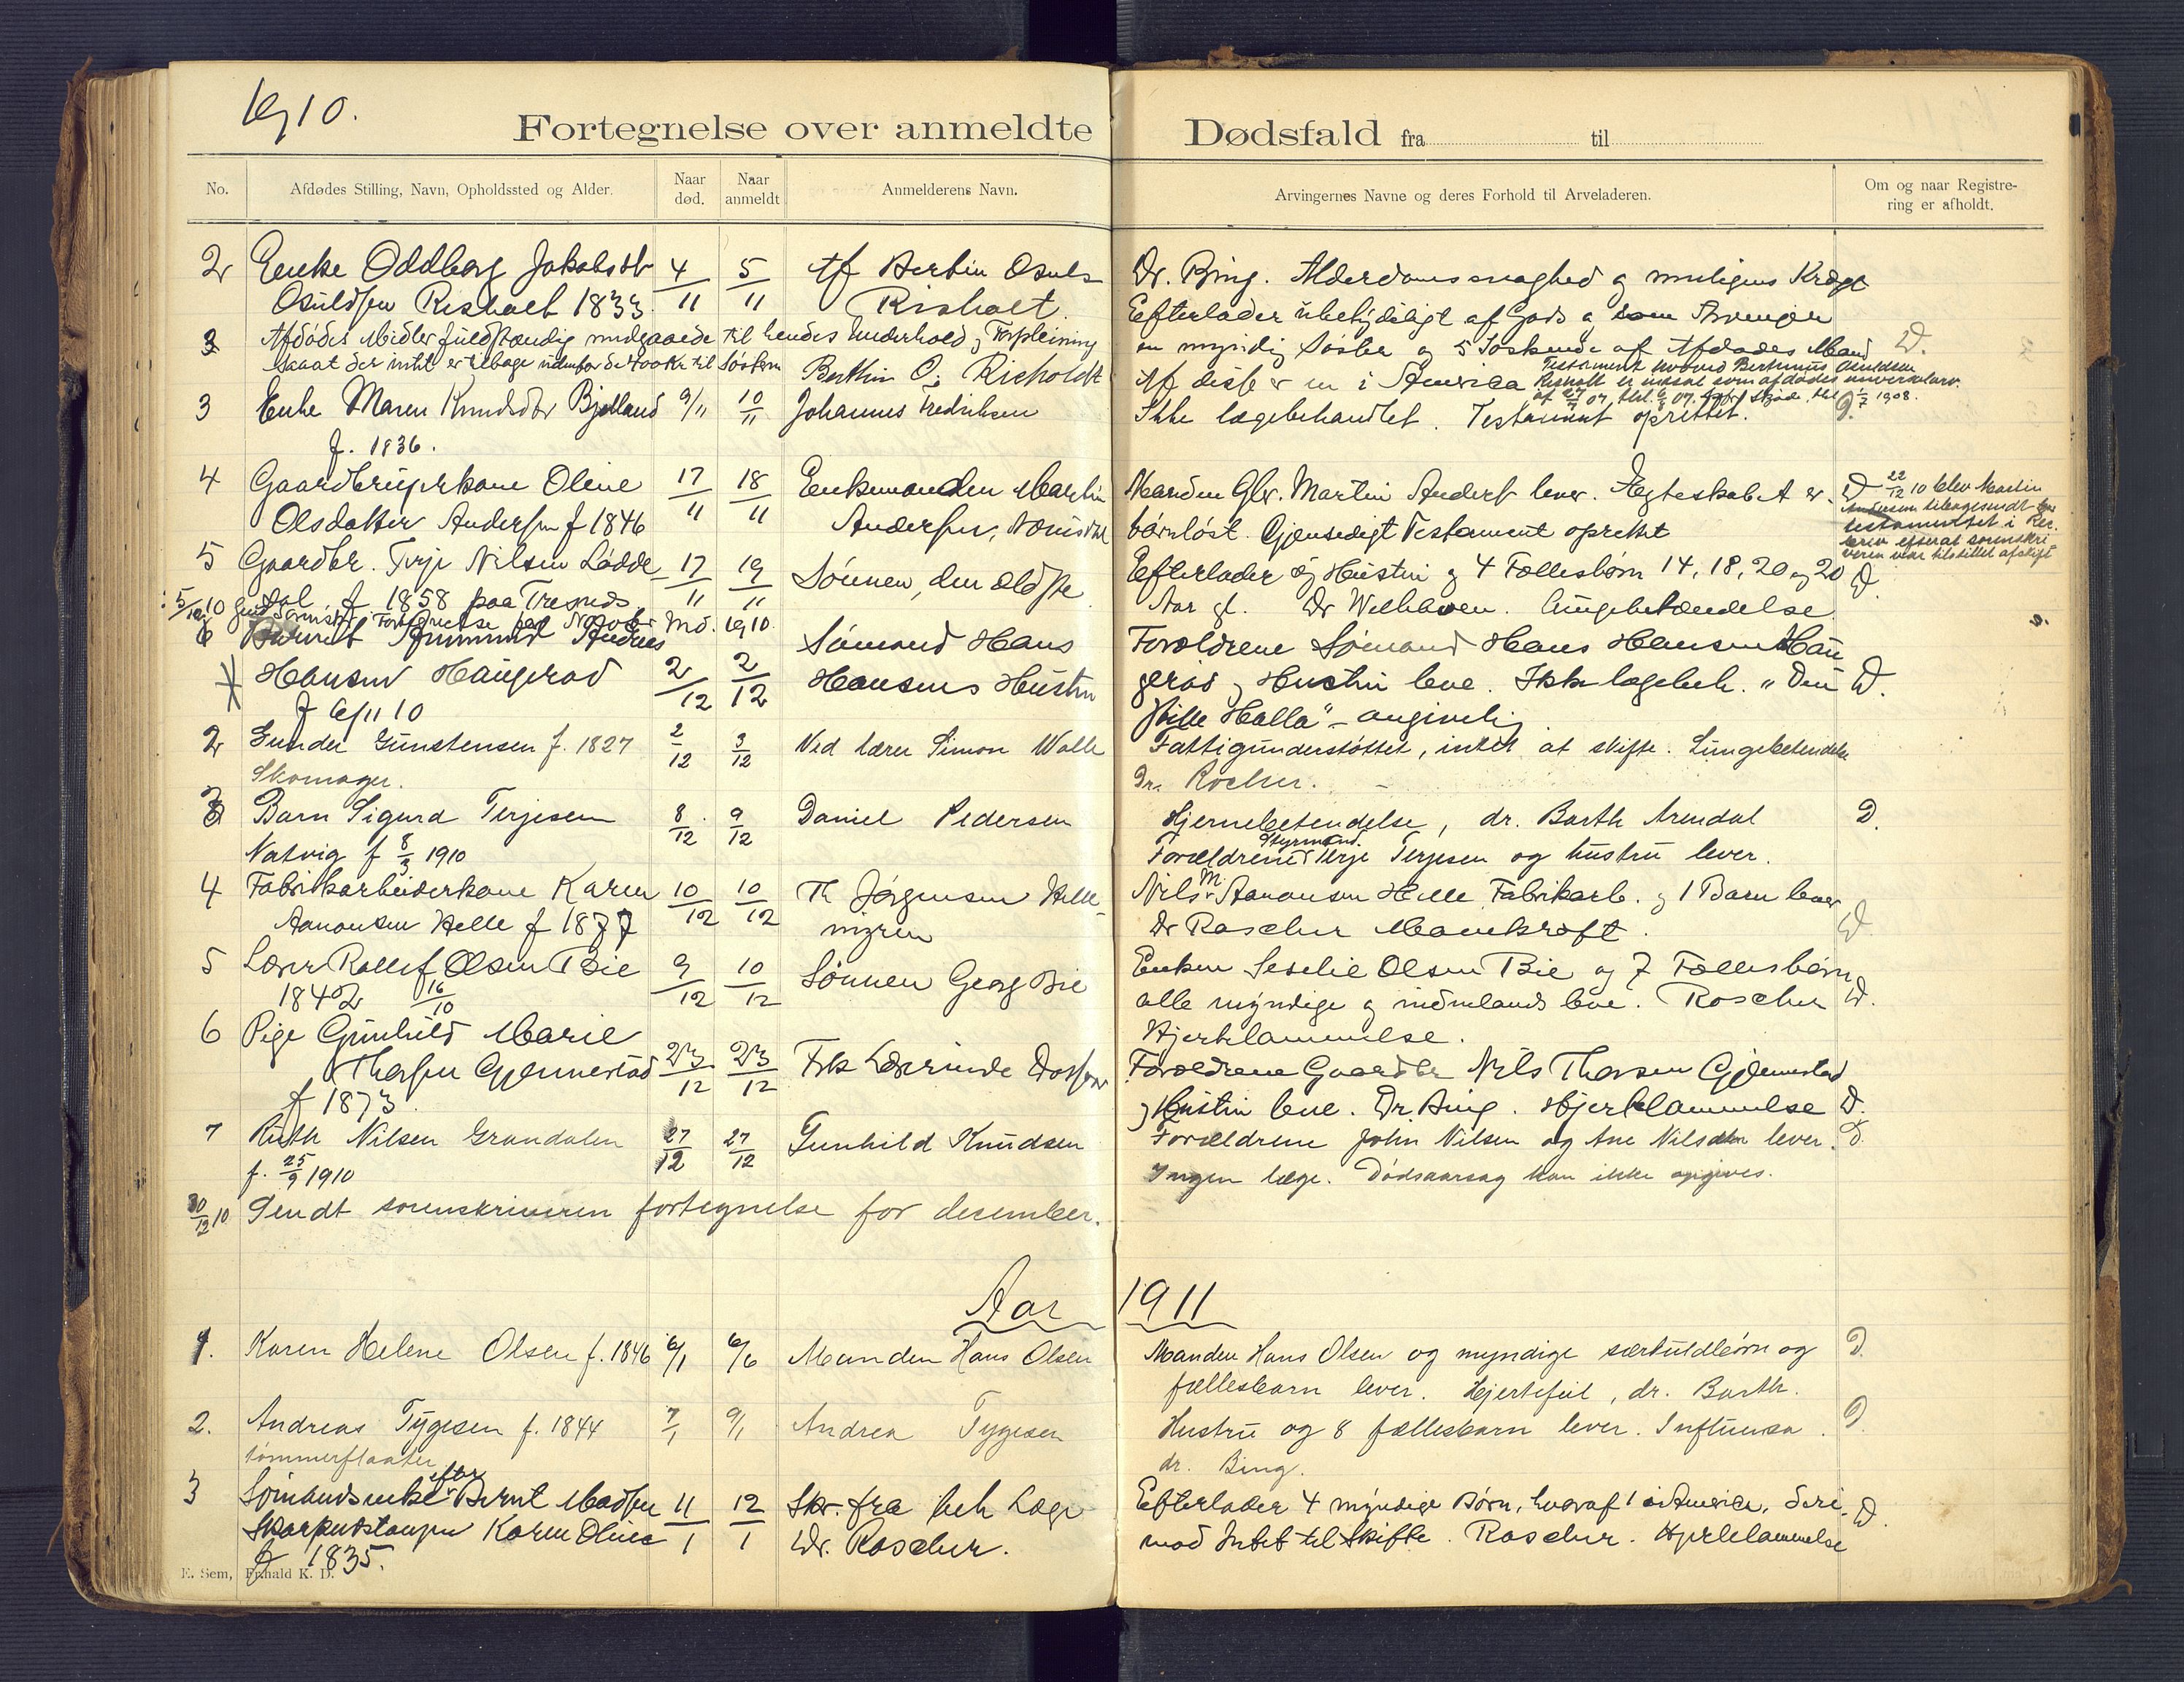 1910.
Fortegnelse over anmeldte Dødsfald fra til
No. Afdødes Stilling, Navn, Opholdssted og Alder. Naar død. Naar anmeldt Anmelderens Navn. Arvingernes Navne og deres Forhold til Arveladeren. Om og naar Registrering er afholdt.
2 Enke Oddborg Jakobsdtr 4/11 5/11 Af Bertin Osuls Dr. Bing. Alderdomssvaghed og muligens Kræft
Osuldsen Risholt 1833. Risholt. Efterlader ubetydeligt af Gods og som Arvinger
3 Afdødes Midler fuldstændig medgaaede til hendes Underhold og Forpleining en myndig Søster og 5 Søskende af Afdødes Mand D.
saaat der intet er tilbage udenfor de 400 Kr til Søsteren Berthin O. Risholdt Af disse er en i America Testament hvorved Bertinius Osuldsen
Risholt er indsat som afdødes universalarv.
3 Enke Maren Knudsdtr Bjelland 9/11 10/11 Johannes Fredriksen Ikke lægebehandlet. Testament oprettet. D.
f. 1836.
4 Gaardbrugerkone Oline 17/11 18/11 Enkemanden Martin Manden Gbr. Martin Anders lever. Ægteskabet er D 22/12 10 blev Martin
Olsdatter Andersen f 1846 Andersen, barnløst. Gjensidigt Testament oprettet Andersen tilbagesendt
testamentet i Rek.
brev efterat sorenskri
veren var tilstillet afskift
5 Gaardbr. Terje Nilsen Lødde 17/11 19/11 Sønnen, den ældste Efterlader sig Hustru og 4 Fællesbørn 14, 18, 20 og 20 D.
dal f 1858 paa Aar gl. Dr Welhaven. Lungebetændelse
5/12 10 Fortegnelse for Novbr Md. 1910.
6 Barnet Andreas Sømand Hans Forældrene Sømand Hans Hansen Hau
Hansen Haugerød 2/12 2/12 Hansens Hustru gerød og Hustru leve. Ikke lægebeh. "Den D.
f 6/11 10 stille Halla" - angivelig
2 Gunder Gunstensen f. 1827 2/12 3/12 Ved lærer Simon Walle Fattigunderstøttet, intet at skifte. Lungebetendelse
Skomager. Dr. Roscher.
3 Barn Sigurd Terjesen 8/12 9/12 Daniel Pedersen Hjernebetendelse, dr. Barth Arendal D.
Natvig f 8/3 1910 Forældrene Styrmand Terje Terjesen og hustru lever.
4 Fabrikarbeiderkone Karen 10/12 10/12 Th Jørgensen Helle- Nils M. Aanonsen Helle Fabrikarb. og 1 Barn lever
Aanonsen Helle f 1877 myren Dr Roscher Mavekræft. D.
5 Lærer Rollef Olsen Bie 9/12 10/12 Sønnen Georg Bie Enken Seselie Olsen Bie og 7 Fællesbørn
1842 16/10 alle myndige og indenlands leve. Roscher D.
6 Pige Gunhild Marie Hjertelammelse.
Thorsen Gjennestad 23/12 23/12 Frk Lærerinde Forældrene Gaardbr Nils Thorsen Gjennestad
f 1873 og Hustru leve. Dr Bing. Hjertelammelse D.
7 Ruth Nilsen Grandalen 27/12 27/12 Gunhild Knudsen Forældrene John Nilsen og Ane Nilsdtr lever. D.
f. 25/9 1910 Ingen læge. Dødsaarsag kan ikke opgives.
30/12 10 Sendt sorenskriveren fortegnelse for december.
Aar 1911
1. Karen Helene Olsen f. 1846 6/1 6/6 Manden Hans Olsen Manden Hans Olsen og myndige særkuldbørn og D.
fællesbarn lever. Hjertefeil, dr. Barth.
2. Andreas Tygesen f. 1844 7/1 9/1 Andrea Tygesen Hustru og 8 fællesbarn lever. Influensa. D.
tømmerfløater dr. Bing.
3 Sømandsenke efter Bernt Madsen 11/1 12/1 Skr. fra beh Læge Efterlader 4 myndige Børn, hvoraf 1 i America. Deri- D.
Karen Oline Dr. Roscher. mod Intet til Skifte. Roscher. Hjertelammelse
f 1835.
E. Sem, Fr.hald K. D.